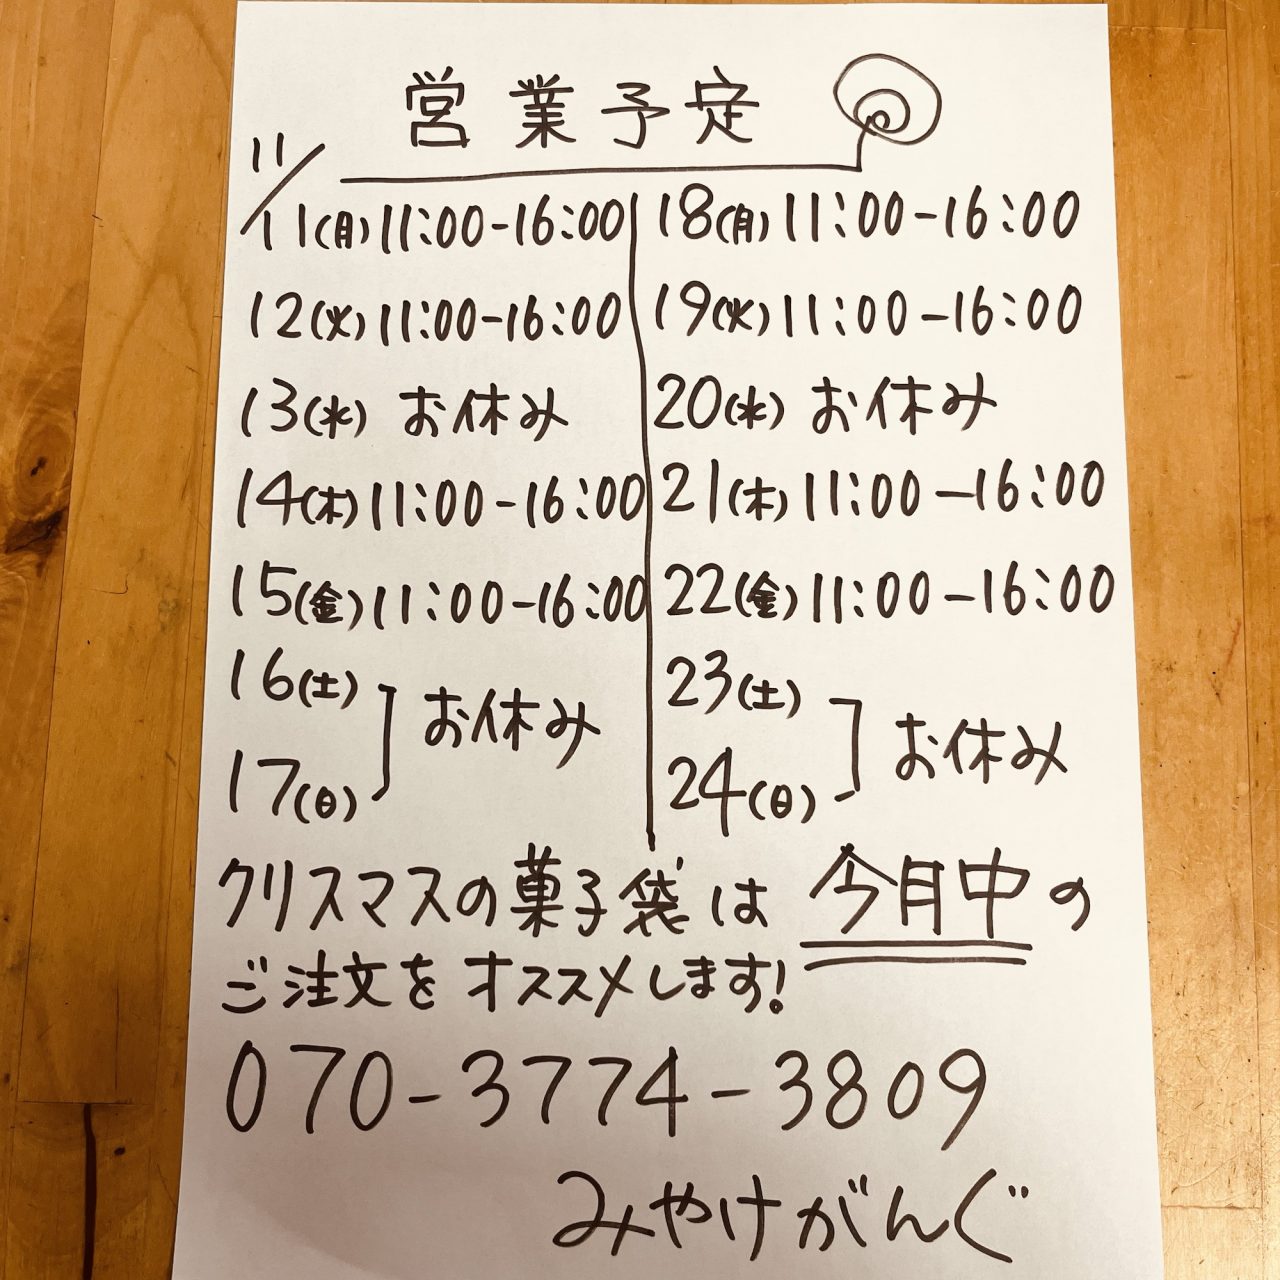 営業予定
11/
11(月)11:00-16:00
12(火)11:00-16:00
13(水) お休み
14(木)11:00-16:00
15(金)11:00-16:00
16(土)
17(日)
お休み
18(月)11:00-16:00
19(火)11:00-16:00
20(水)お休み
21(木)11:00-16:00
22(金)11:00-16:00
23(土)
24(日)
お休み
クリスマスの菓子袋は今月中の
ご注文をオススメします!
070-3774-3809
みやけがんぐ